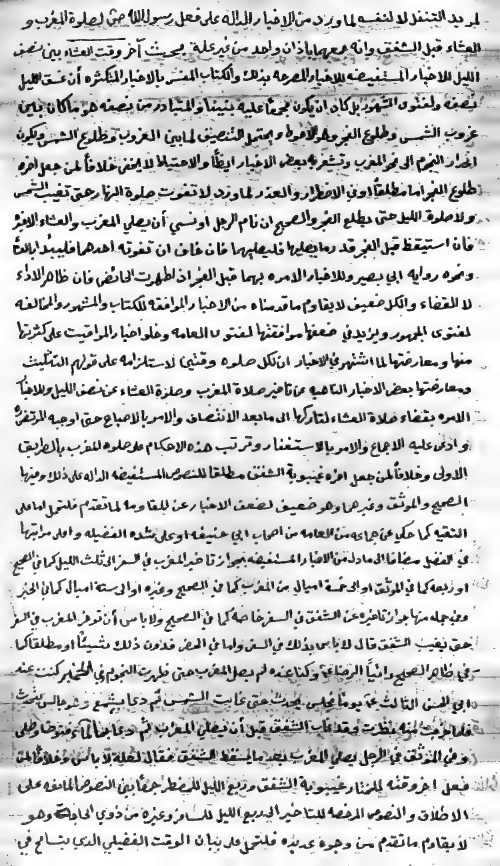 لمريد التنفل لا لنفسه لما ورد من الاخبار الدالة على فعل رسول الله لصلوة المغرب و
العشاء قبل الشفق وانه جمعهما باذان واحد من غير علة آخر وقت العشاء نصف
الليل للاخبار المستفيضة المصرحة بذلك والكتاب المفسر بالاخبار المتكثرة أن غسق الليل
نصفه ولفتوى المشهور بل كاد ان يكون مجمعا عليه بيننا والمتبادر من نصفه هو ما كان بين
غروب الشمس وطلوع الفجر وهو الاحوط ويحتمل التنصيف لما بين الغروب وطلوع الشمس ويكون
انحدار النجوم الى نحو المغرب وتشعر به بعض الاخبار ايضا والاحتياط لا يخفى خلافا لمن جعل اخره
طلوع الفجر اما مطلقا او في الاضطرار والعذر لما ورد لا تفوت صلوة النهار حتى تغيب الشمس
ولا صلوة الليل حتى يطلع الفجر والصحيح ان نام الرجل او نسي أن يصلي المغرب والعشاء الاخرة
فان استيقظ قبل الفجر قدر ما يصليهما فليصلهما فان خاف ان تفوته احدهما فليبدأ بالعشاء
ونحوه رواية ابي بصير وللاخبار الامره بهما قبل الفجر اذا طهرت الحائض فان ظاهر الاداء
لا القضاء والكل ضعيف لا يقاوم ما قدمناه من الاخبار الموافقة للكتاب والمشهور والمخالفه
لفتوى الجمهور ويزيد في ضعفها موافقتها لفتوى العامه وخلو اخبار المواقيت على كثرتها
منها ومعارضتها لما اشتهر في الاخبار ان لكل صلوة وقتين لاستلزامه على قولهم التثليث
ومعارضتها بعض الاخبار الناهيه عن تاخير صلاة المغرب وصلوة العشاء عن نصف الليل وللاخبار
الامره بقضاء صلاة العشاء لتاركها الى ما بعد الانتصاف والامر بالاصباح حتى اوجبه المرتضى
وادعى عليه الاجماع والامر بالاستغفار وترتب هذه الاحكام على صلوه المغرب بالطريق
الاولى وخلافا لمن جعل اخره غيبوبة الشفق مطلقا للنصوص المستفيضة الدالة على ذلك وفيها
الصحيح والموثق وغيرهما وهو ضعيف لضعف الاخبار عن المقاومة لما تقدم فلتحمل اما على
التقية كما حكي عن جماعه من العامه من اصحاب ابي حنيفه او على شدة الفضيله واعلى مراتبها
في الفضل مضافا الى ما دل من الاخبار المستفيضه بجواز تاخير المغرب في السفر الى ثلث الليل كما في الصحيح
او ربعه كما في الموثق او الى خمسة اميال من المغرب كما في الصحيح وغيره او الى ستة اميال كما في الخبر
وفي جملة منها جواز تاخيره عن الشفق في السفر خاصة كما في الصحيح ولا باس أن تؤخر المغرب في السفر
حتى يغيب الشفق قال لا باس بذلك في السفر واما في الحضر فدون ذلك شيئا او مطلقا كما
في ظاهر الصحيح رأينا الرضا وكنا عنده لم يصل المغرب حتى ظهرت النجوم كنت عند
ابي الحسن الثالث يوما نجلس يحدث حتى غابت الشمس ثم دعا بشمع وهو جالس يتحدث
فلما خرجت من نظرت فقد غاب الشفق قبل أن يصلي المغرب ثم دعا بالماء فتوضأ وصلى
وفي الموثق في الرجل يصلي المغرب بعد ما يسقط الشفق فقال لعلة لا باس وخلافا لمن
جعل اخر وقته للمختار غيبوبة الشفق وربع الليل للمضطر جمعا بين النصوص المانعه على
الاطلاق والنصوص المرخصه للتاخير الى ربع الليل للمسافر وغيره من ذوي الحاجة وهو
لا يقاوم ما تقدم من وجوه عديدة فلتحمل على بيان الوقت الفضيلي الذي يتسامح في